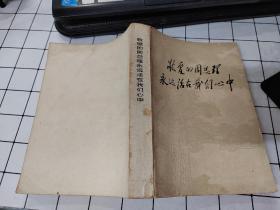 敬爱的周总理
永远活在我们心中
敬爱的周总理永远活在我们心中